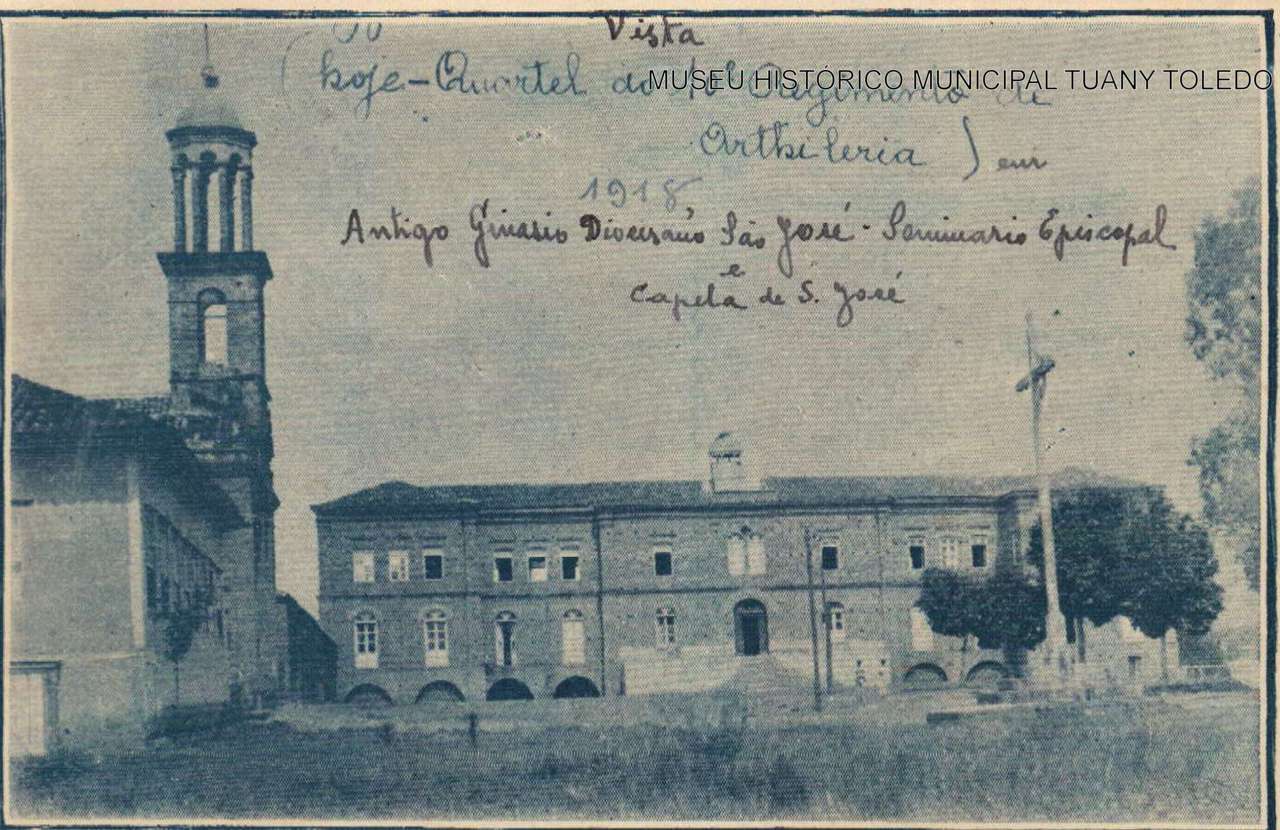 Vista
(hoje - Quartel do Regimento de
MUSEU HISTÓRICO MUNICIPAL TUANY TOLEDO
Arthileria) em
1918
Antigo Ginasio Diocesano São José - Seminario Episcopal
e
Capela de S. José